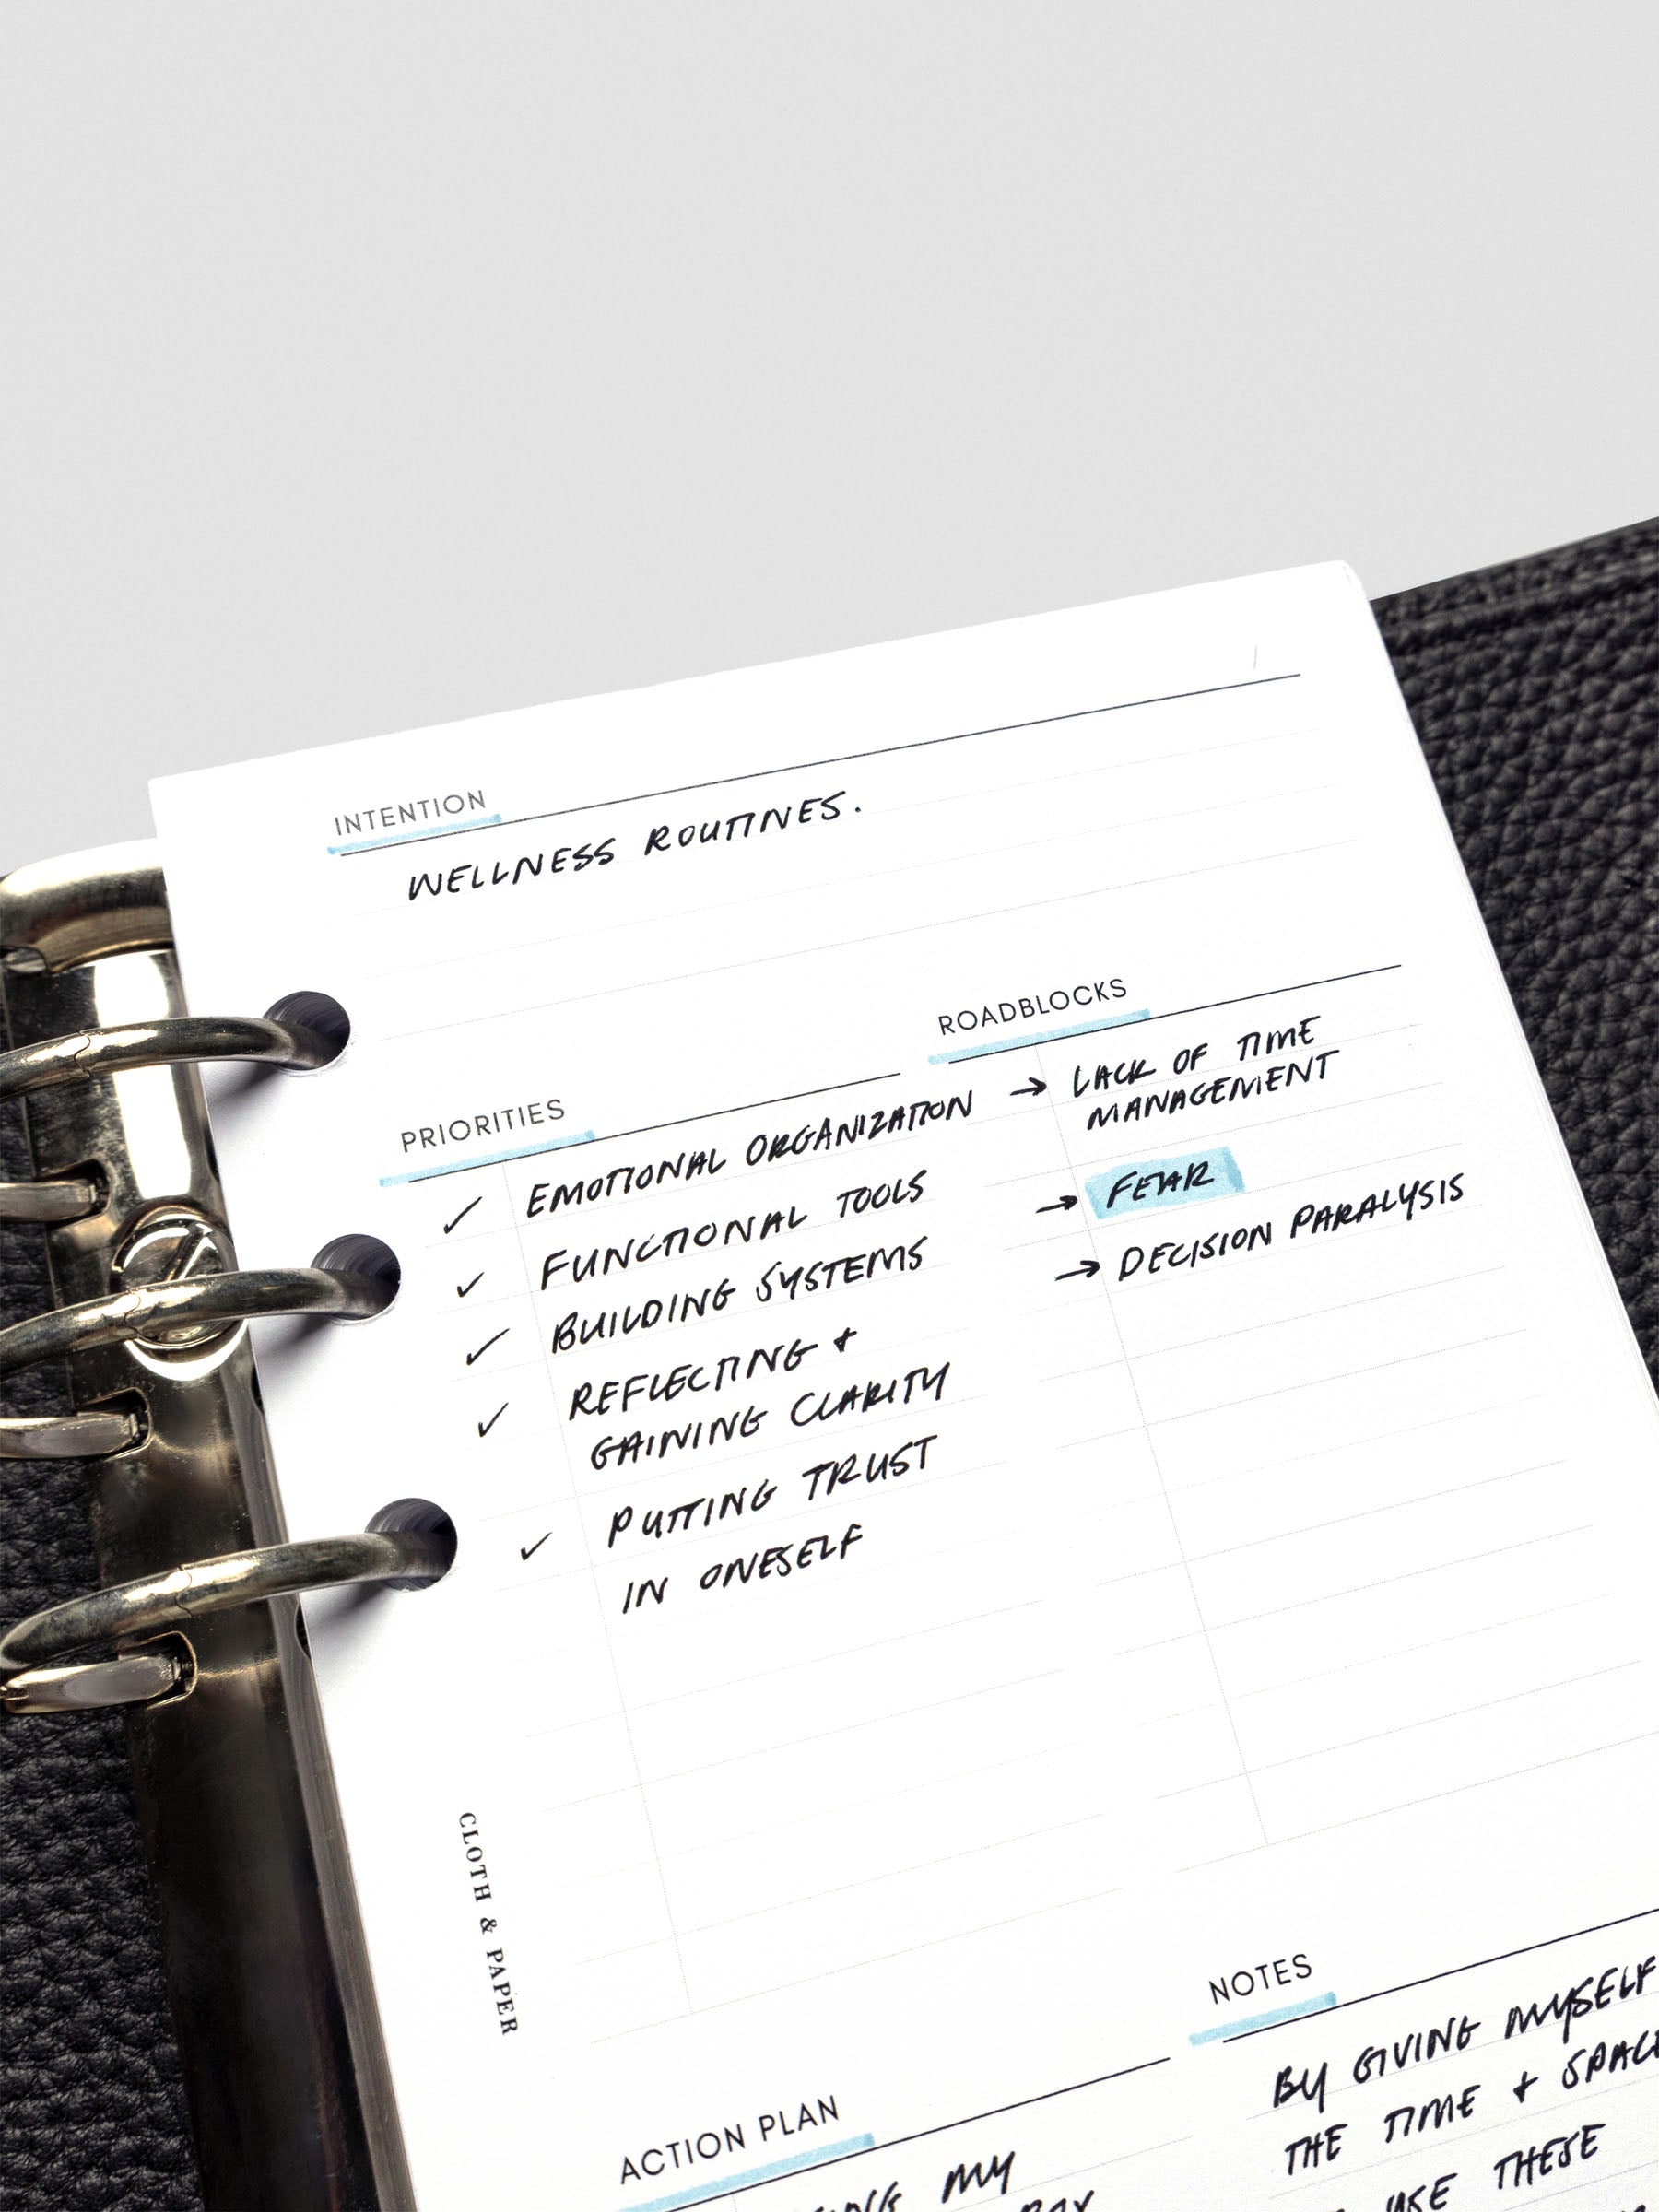 INTENTION
WELLNESS ROUTINES.
PRIORITIES
✓ EMOTIONAL ORGANIZATION
✓ FUNCTIONAL TOOLS
✓ BUILDING SYSTEMS
✓ REFLECTING +
GAINING CLARITY
✓ PUTTING TRUST
IN ONESELF
ROADBLOCKS
→ LACK OF TIME
MANAGEMENT
→ FEAR
→ DECISION PARALYSIS
CLOTH & PAPER
ACTION PLAN
MY
NOTES
BY GIVING MYSELF
THE TIME + SPACE
USE THESE